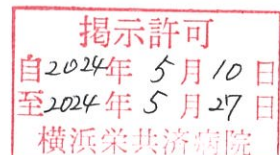 掲示許可
自2024年5月10日
至2024年5月27日
横浜栄共済病院